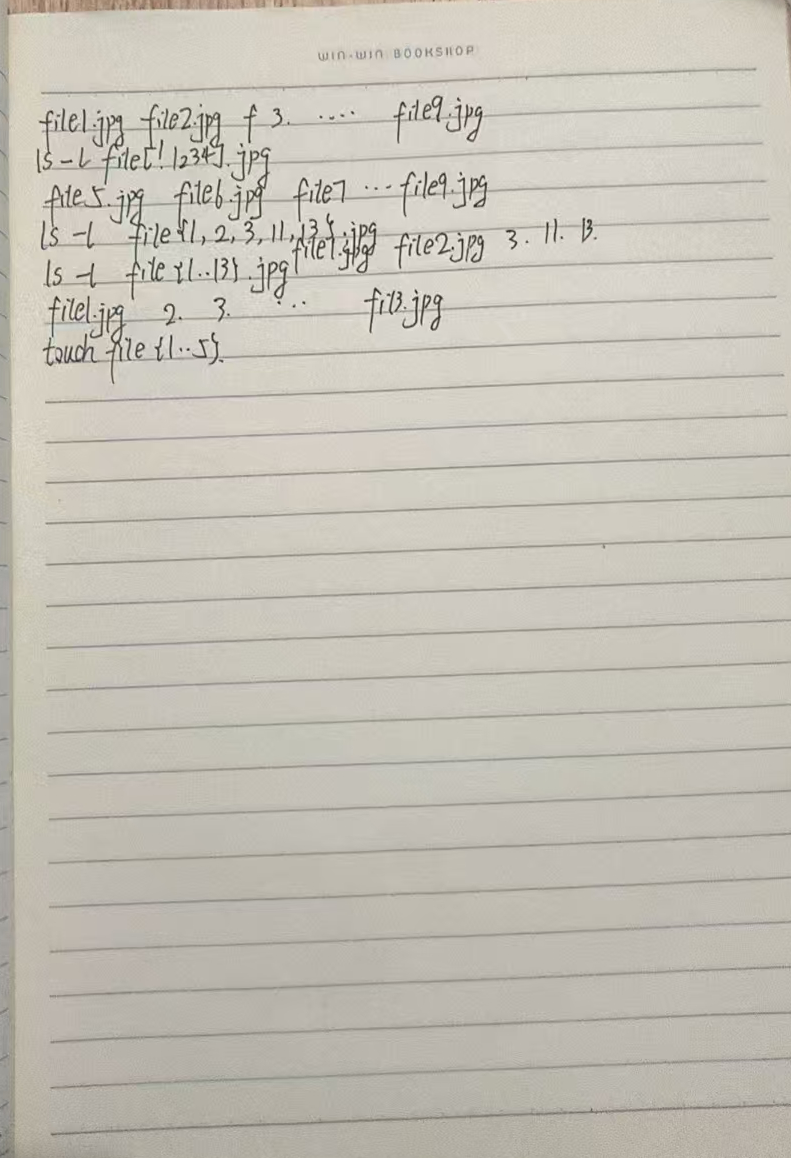 WIN-WIN BOOKSHOP
file1.jpg file2.jpg f 3. .... file9.jpg
ls -l file[!1234].jpg
file5.jpg file6.jpg file7 ... file9.jpg
ls -l file{1, 2, 3, 11, 13}.jpg
file1.jpg file2.jpg 3. 11. 13.
ls -l file{1..13}.jpg
file1.jpg 2. 3. ... fil3.jpg
touch file{1..5}.